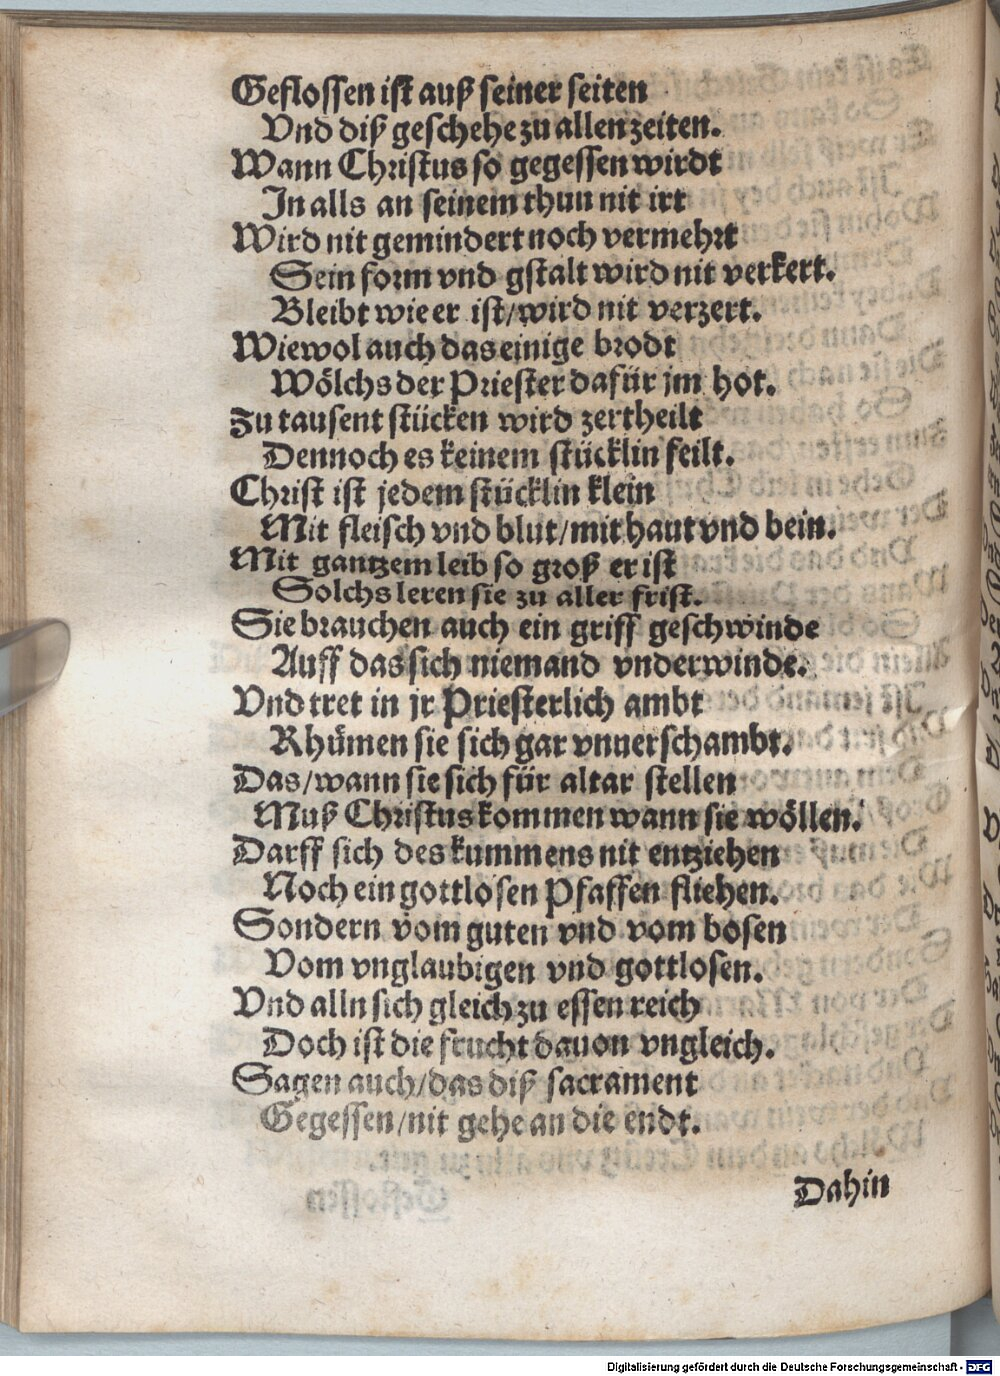 Geflossen ist auß seiner seiten
Vnd diß geschehe zu allen zeiten.
Wann Christus so gegessen wirdt
In alls an seinem thun nit irt
Wird nit gemindert noch vermehrt
Sein form vnd gstalt wird nit verkert.
Bleibt wie er ist/wird nit verzert.
Wiewol auch das einige brodt
Wölchs der Priester dafür jm hot.
Zu tausent stücken wird zertheilt
Dennoch es keinem stücklin feilt.
Christ ist jedem stücklin klein
Mit fleisch vnd blut/mit haut vnd bein.
Mit gantzem leib so groß er ist
Solchs leren sie zu aller frist.
Sie brauchen auch ein griff geschwinde
Auff das sich niemand vnderwinde.
Vnd tret in jr Priesterlich ambt
Rhümen sie sich gar vnuerschambt.
Das/wann sie sich für altar stellen
Muß Christus kommen wann sie wöllen.
Darff sich des kummens nit entziehen
Noch ein gottlosen Pfaffen fliehen.
Sondern vom guten vnd vom bosen
Vom vnglaubigen vnd gottlosen.
Vnd alln sich gleich zu essen reich
Doch ist die frucht dauon vngleich.
Sagen auch/das diß sacrament
Gegessen/nit gehe an die endt.
Dahin
Digitalisierung gefördert durch die Deutsche Forschungsgemeinschaft - DFG